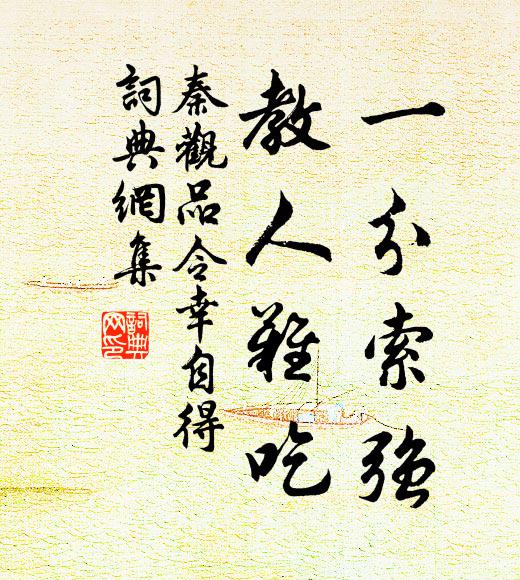 一分索強
教人難吃
秦觀品令幸自得
詞典網集
詞典網印